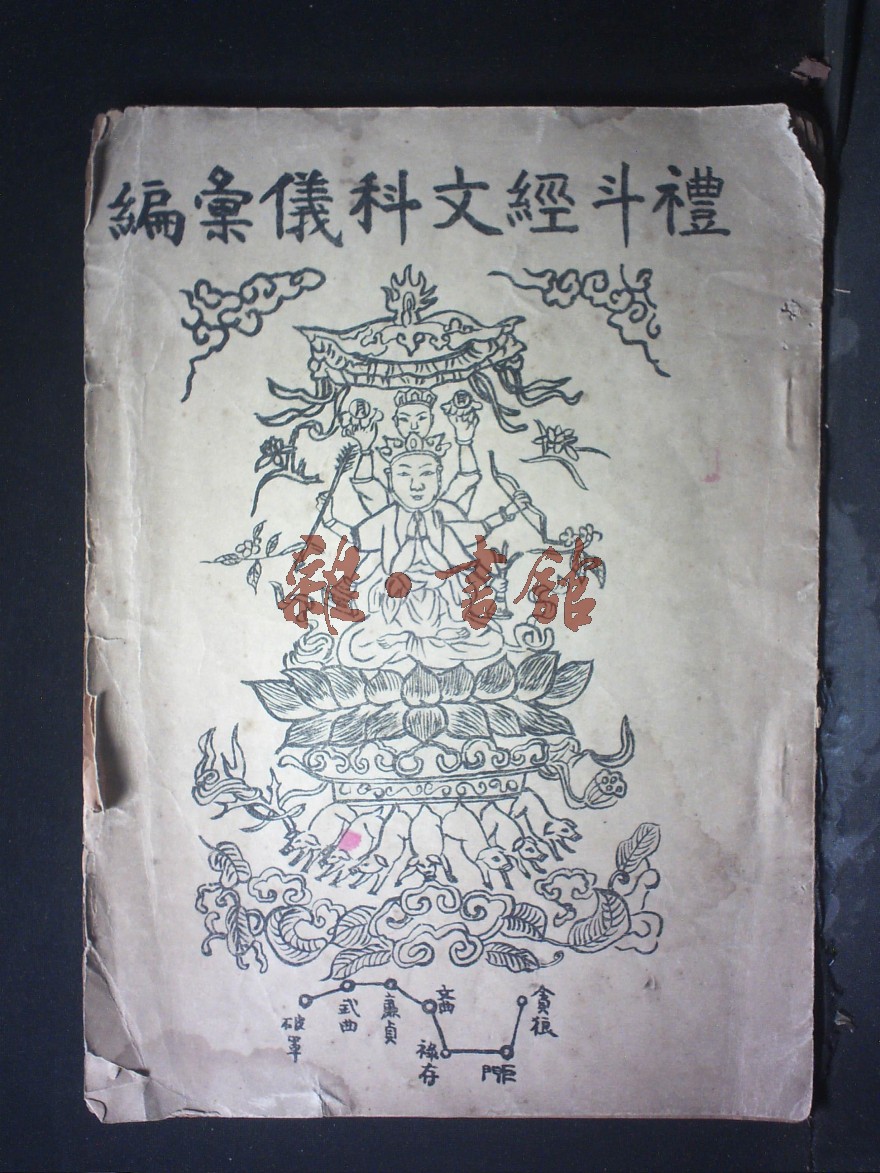 禮斗經文科儀彙編
日
月
雜·書舘
貪狼
巨門
祿存
文曲
廉貞
武曲
破軍